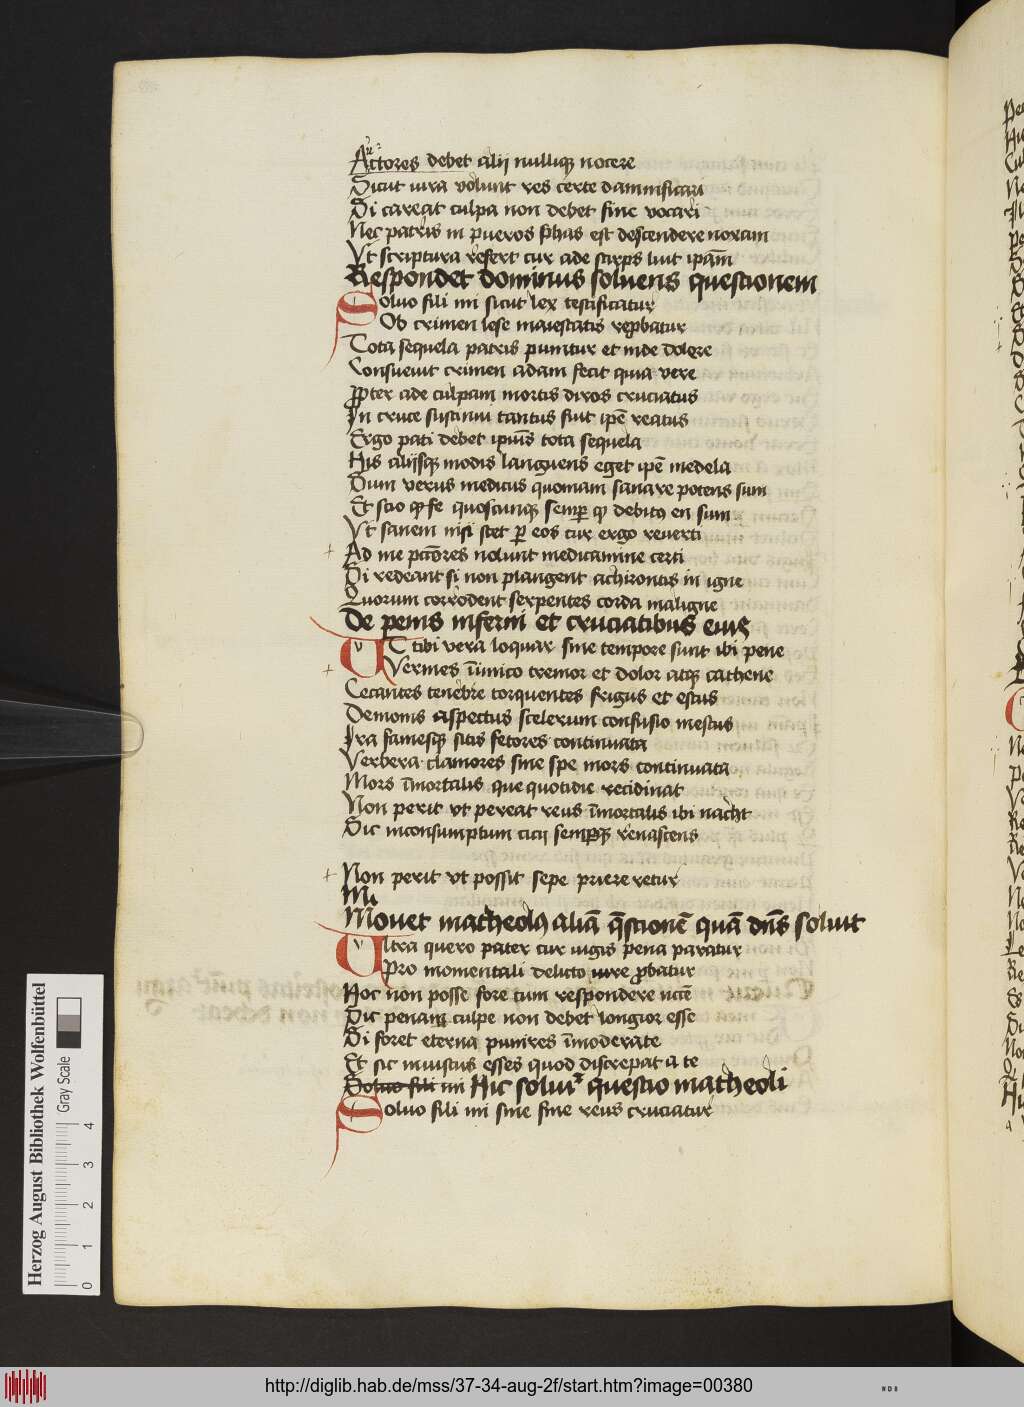 Actores debet alii nulliqꝫ nocere
Sicut iura volunt res certe dampnificari
Si careat culpa non debet sine vocari
Nec patris in pueros phas est descendere noxam
Vt scriptura refert cur ade stirps luit ipam̄
Respondet dominus soluens questionem
Soluo fili mi sicut lex testificatur
Ob crimen lese maiestatis reprobatur
Tota sequela patris punitur et inde dolere
Consueuit crimen adam fecit quia vere
Propter ade culpam mortis diros cruciatus
In cruce sustinui tantus fuit ipē reatus
Ergo pati debet ipius̄ tota sequela
His aliisqꝫ modis languens eget ipē medela
Dum verus medicus quoniam sanare potens sum
Et scio qꝫ fe quoscunqꝫ semp̄ qꝫ debitꝯ en sum
Vt sanem nisi stet ꝑ eos cur ergo reuerti
Ad me pctōres nolunt medicamine certi
Si redeant si non plangent achirontis in igne
Quorum corrodent serpentes corda maligne
De penis inferni et cruciatibus eius
VT tibi vera loquar sine tempore sunt ibi pene
Vermes īimico tremor et dolor atqꝫ cathene
Cecantes tenebre torquentes frigus et estus
Demonis aspectus scelerum confusio mestus
Ira famesqꝫ sitis fetores continuata
Verbera clamores sine spe mors continuata
Mors īmortalis que quotidie recidinat
Non perit vt pereat reus īmortalis ibi
Sic inconsumptum ticii sempqꝫ renascens
Non perit vt possit sepe
Mi
Mouet matheolꝯ aliā q̄stionē quā dn̄s soluit
Vltra quero pater cur iugis pena paratur
Pro momentali delicto iure probatur
Hoc non posse fore cum respondere
Sic penam culpe non debet longior esse
Si foret eterna punires īmoderate
Et sic iniustus esses quod discrepat a te
Soluo fili mi Hic soluit̄ questio matheoli
Soluo fili mi sine fine reus cruciatur
Herzog August Bibliothek Wolfenbüttel
Gray Scale
0 1 2 3 4
http://diglib.hab.de/mss/37-34-aug-2f/start.htm?image=00380